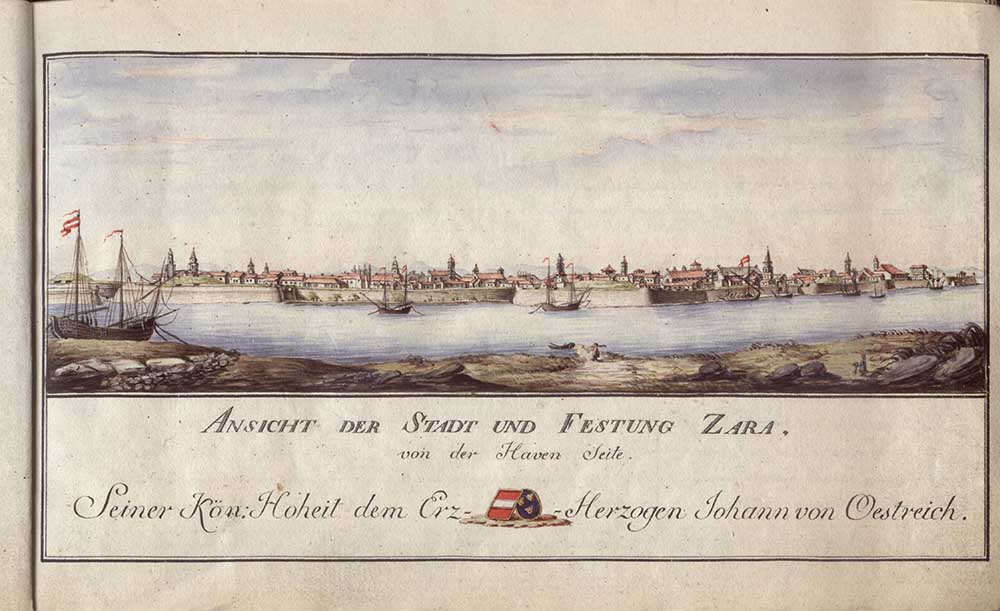 ANSICHT DER STADT UND FESTUNG ZARA.
von der Haven Seite.
Seiner Kön: Hoheit dem Erz--Herzogen Johann von Oestreich.